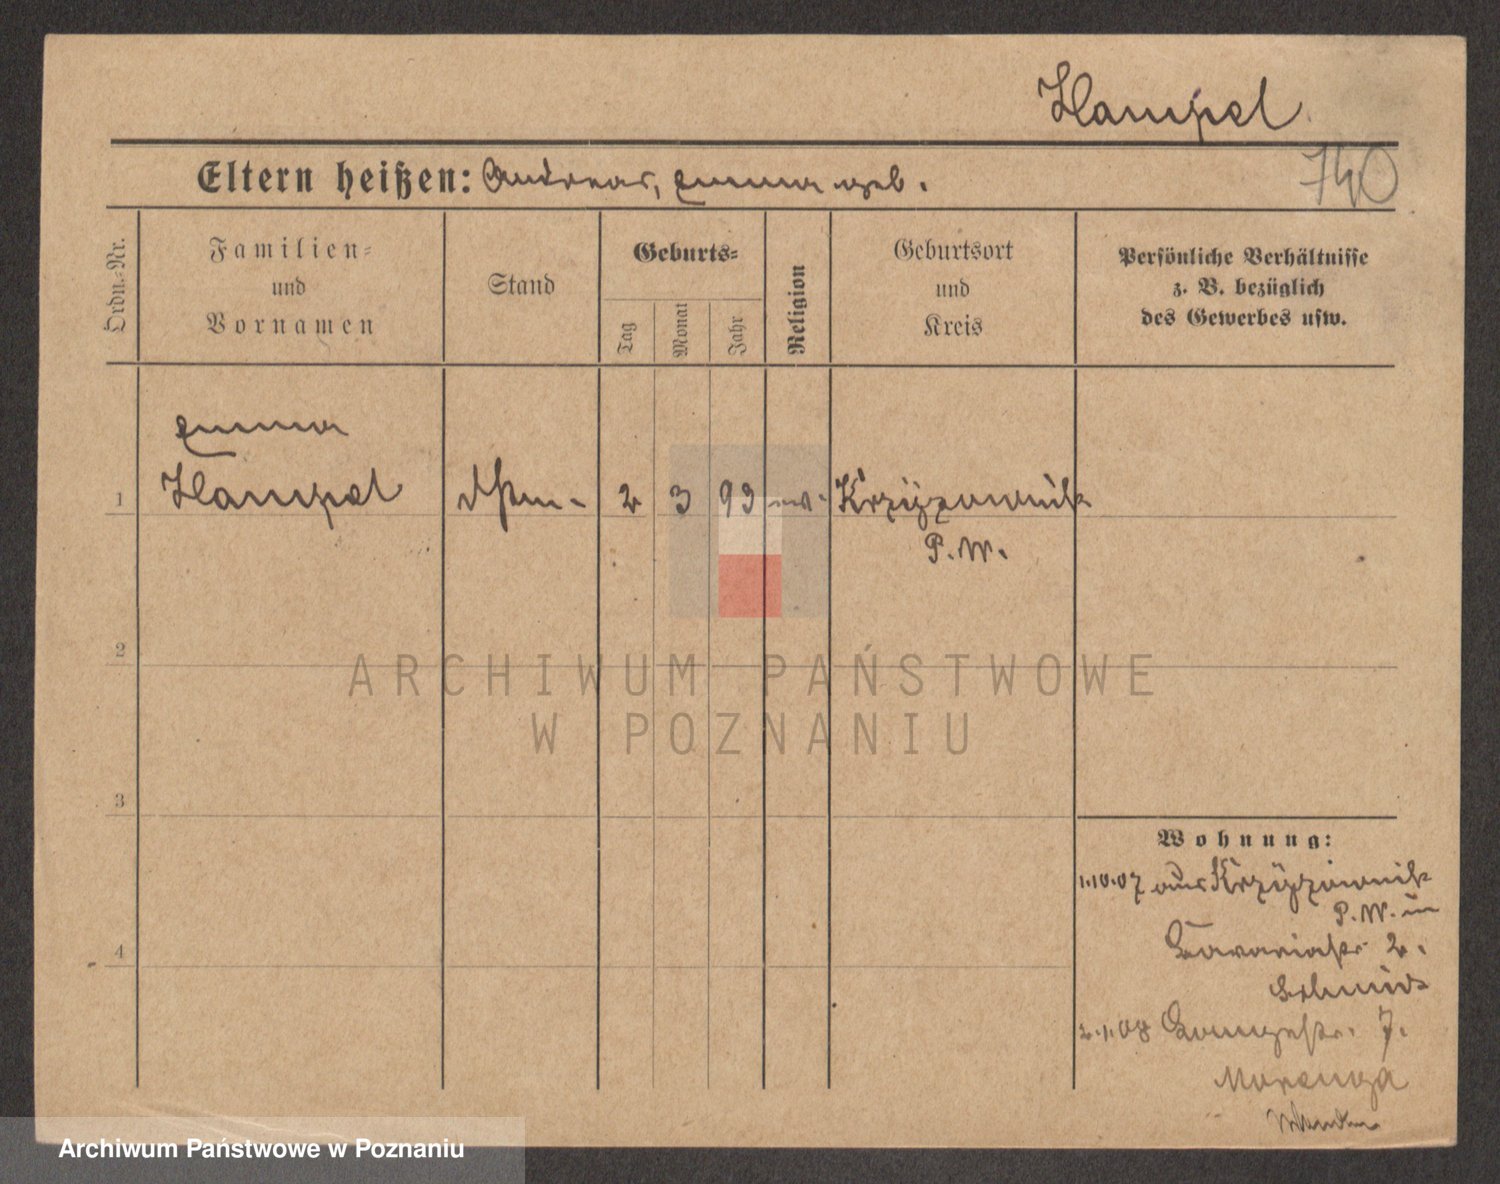 Hampel
740
Eltern heißen: Andreas, Emma geb.
Ordn.-Nr.
Familien-
und
Vornamen
Stand
Geburts-
Tag
Monat
Jahr
Religion
Geburtsort
und
Kreis
Persönliche Verhältnisse
z. B. bezüglich
des Gewerbes usw.
Emma
1 Hampel 2 3 93 ev. Krzyzownik
P.W.
2
3
4
Wohnung:
1.10.07 aus Krzyzownik
P.W. in
2.
Schmidt
2.1.08 7.
ARCHIWUM PAŃSTWOWE
W POZNANIU
Archiwum Państwowe w Poznaniu